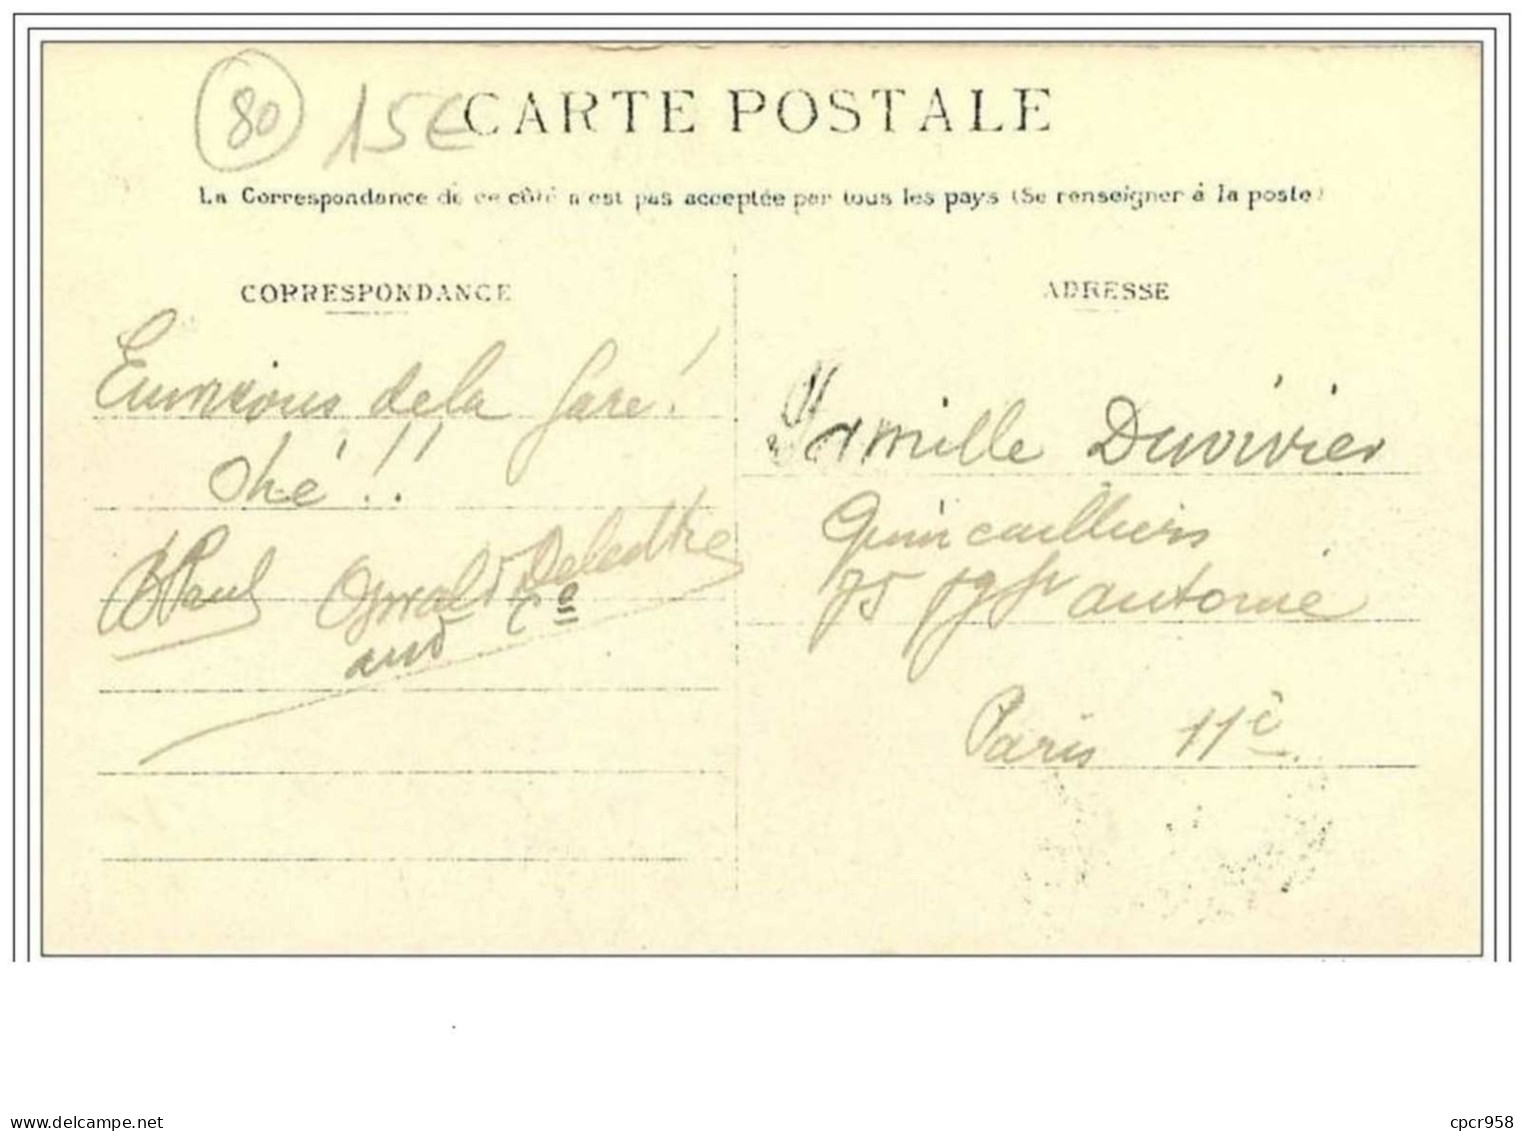 80 15€
CARTE POSTALE
La Correspondance de ce côté n'est pas acceptée par tous les pays (Se renseigner à la poste)
CORRESPONDANCE
Environs de la Gare!
Ohé!!!
Paul Oswald Delcattre
and Co
ADRESSE
Duvivier
Quincailliers
75 fg St antoine
Paris 11e
delcampe.net
cpcr958